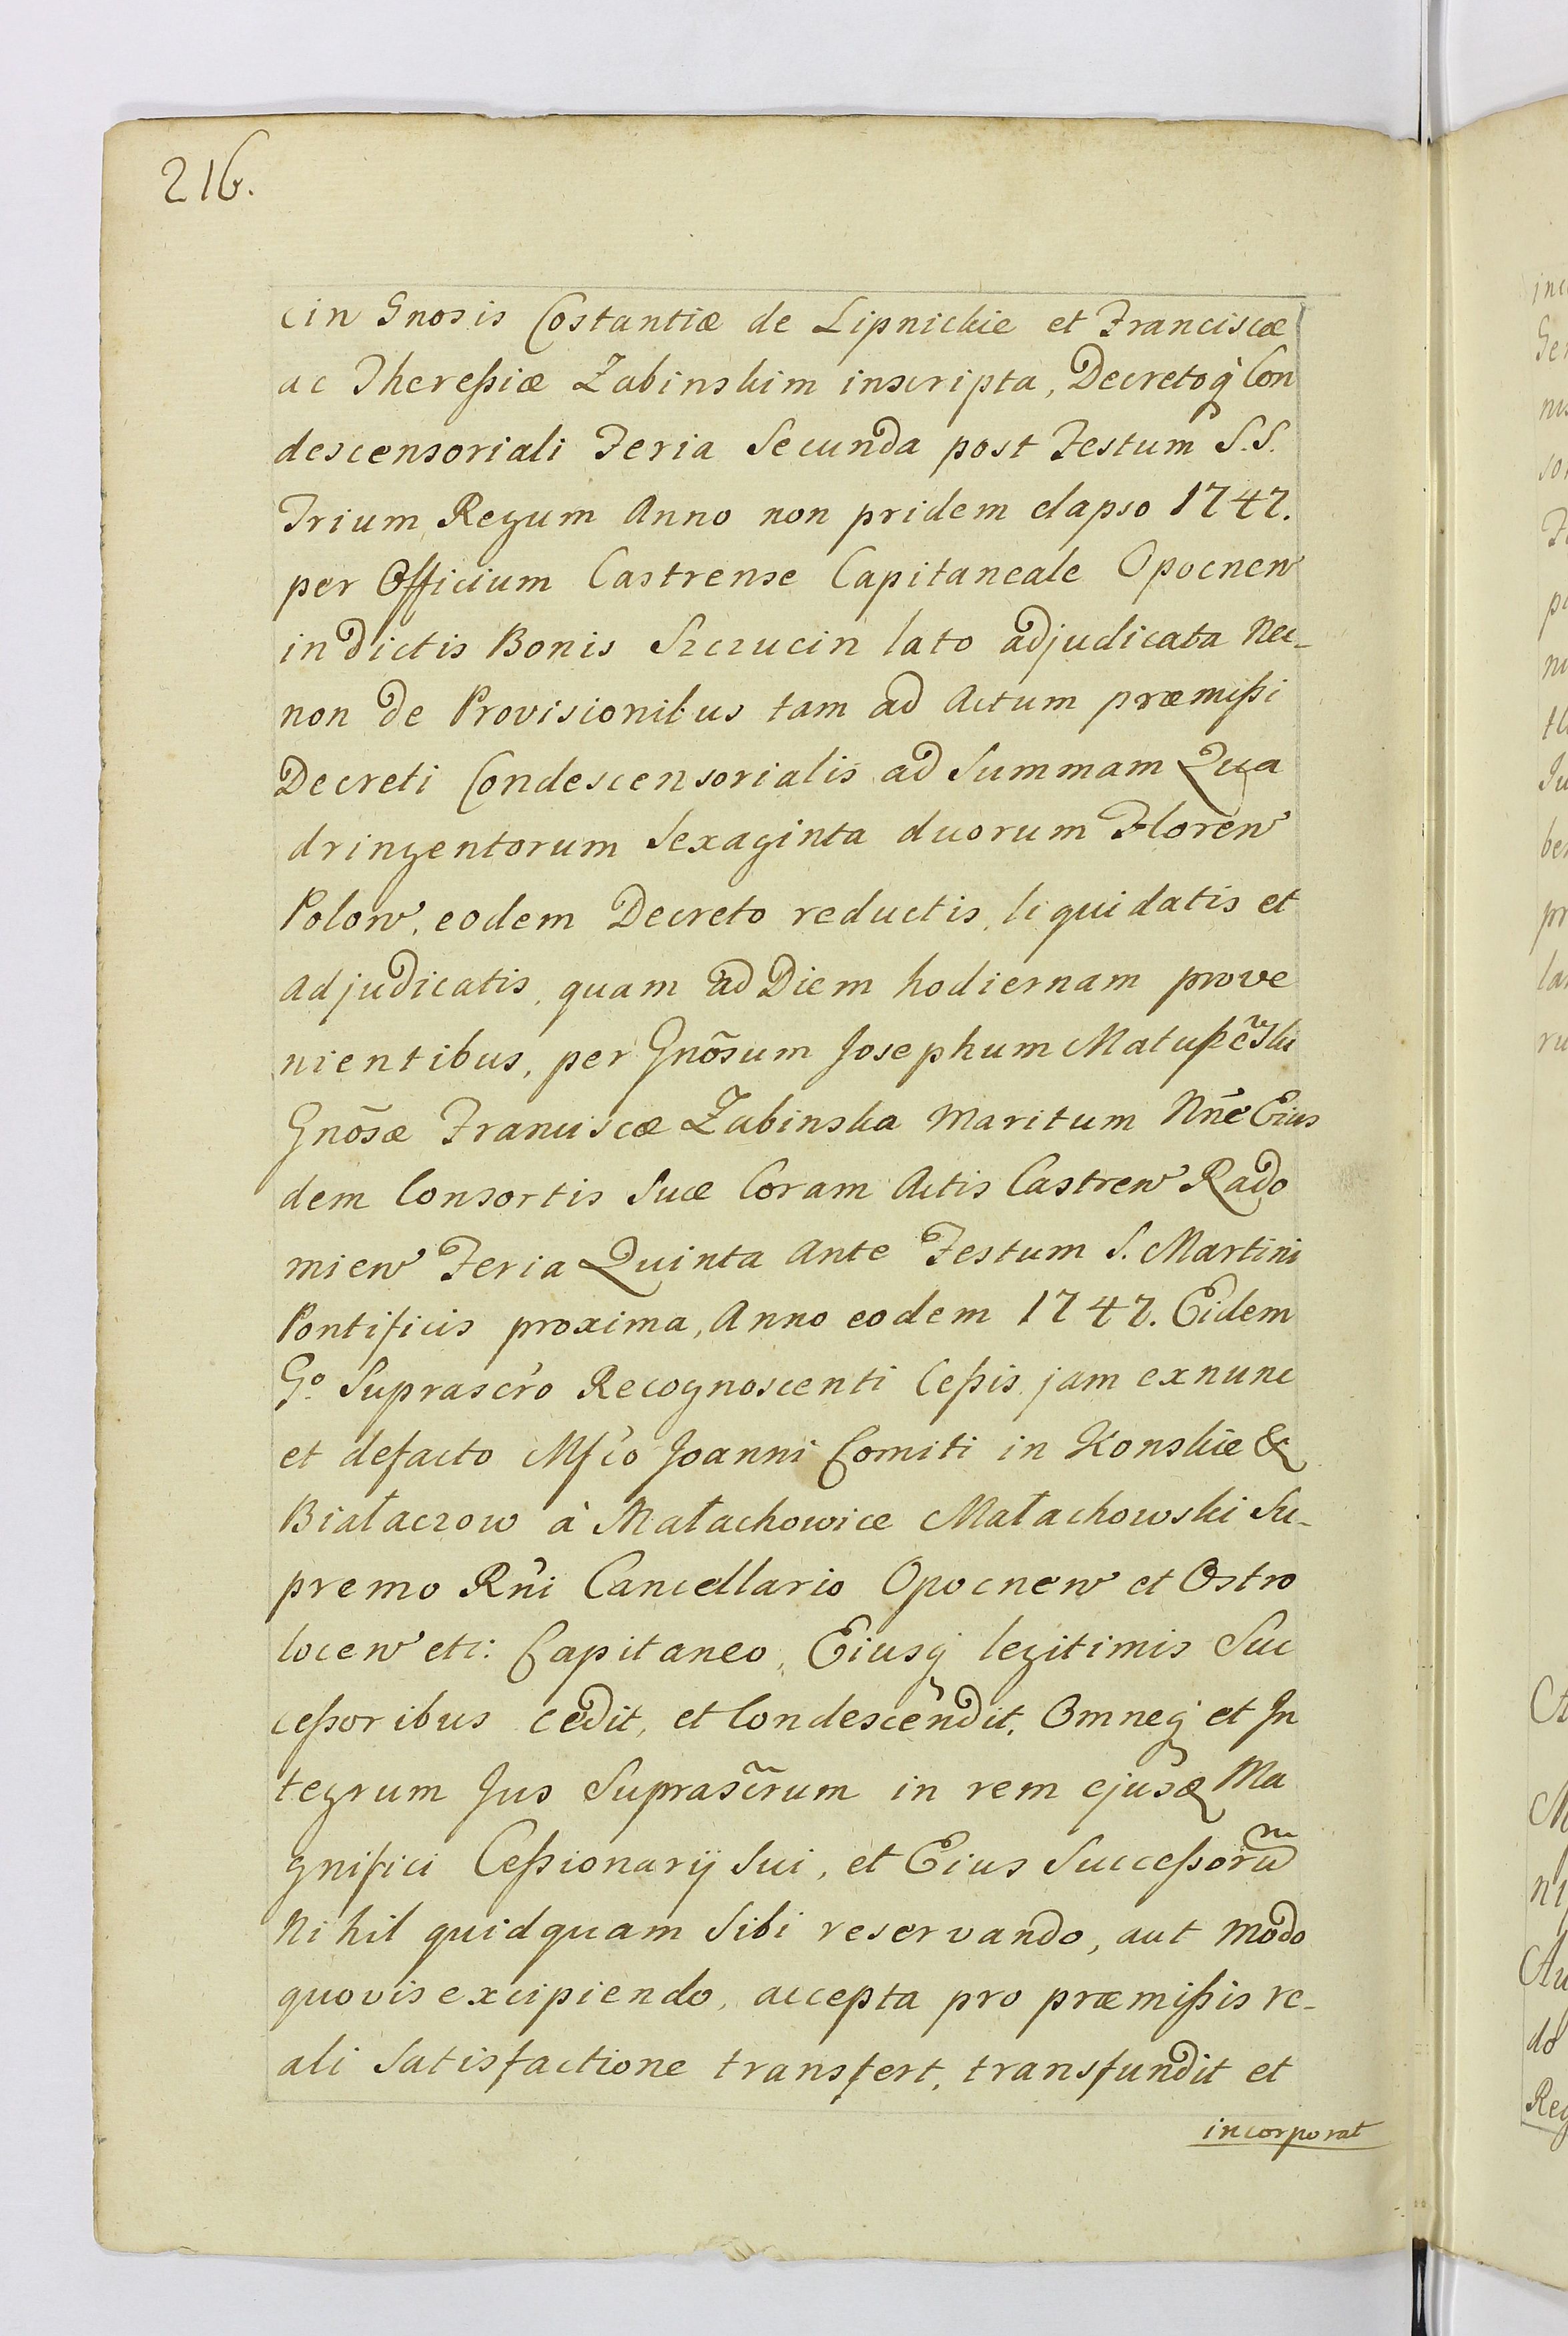 216.
cin Gnosis Costantiæ de Lipnickie et Franciscæ
ac Thereßiæ Zabinskim inscripta, Decretoq́ Con
descensoriali Feria Secunda post Festum S.S.
Trium Regum Anno non pridem elapso 1747.
per Officium Castrense Capitaneale Opocnen
in dictis Bonis Szczucin lato adjudicata Nec-
non de Provisionibus tam ad Actum præmißi
Decreti Condescensorialis ad Summam Qua
dringentorum Sexaginta duorum Floren
Polon, eodem Decreto reductis, liquidatis et
adjudicatis, quam ad Diem hodiernam prove
nientibus, per Gnõsum Josephum Matußeski
Gnõsæ Franciscæ Zabinska Maritum Nñe Eius
dem Consortis Suæ Coram Actis Castren Rado
mien Feria Quinta Ante Festum S. Martini
Pontificis proxima, Anno eodem 1747. Eidem
Gº Suprascr̃o Recognoscenti Ceßis jam exnunc
et defacto Mfc̃o Joanni Comiti in Konskie &
Białaczow à Małachowice Małachowski Su-
premo Rñi Cancellario Opocnen et Ostro
locen etc: Capitaneo, Eiusq́ legitimis Suc
ceßoribus cedit, et Condescendit, Omneq́ et In
tegrum Jus Suprascr̃um in rem ejusd Ma
gnifici Ceßionarij Sui, et Eius Succeßorũ
Nihil quidquam Sibi reservando, aut Modo
quovis excipiendo, accepta pro præmißis re-
ali Satisfactione transfert, transfundit et
incorporat